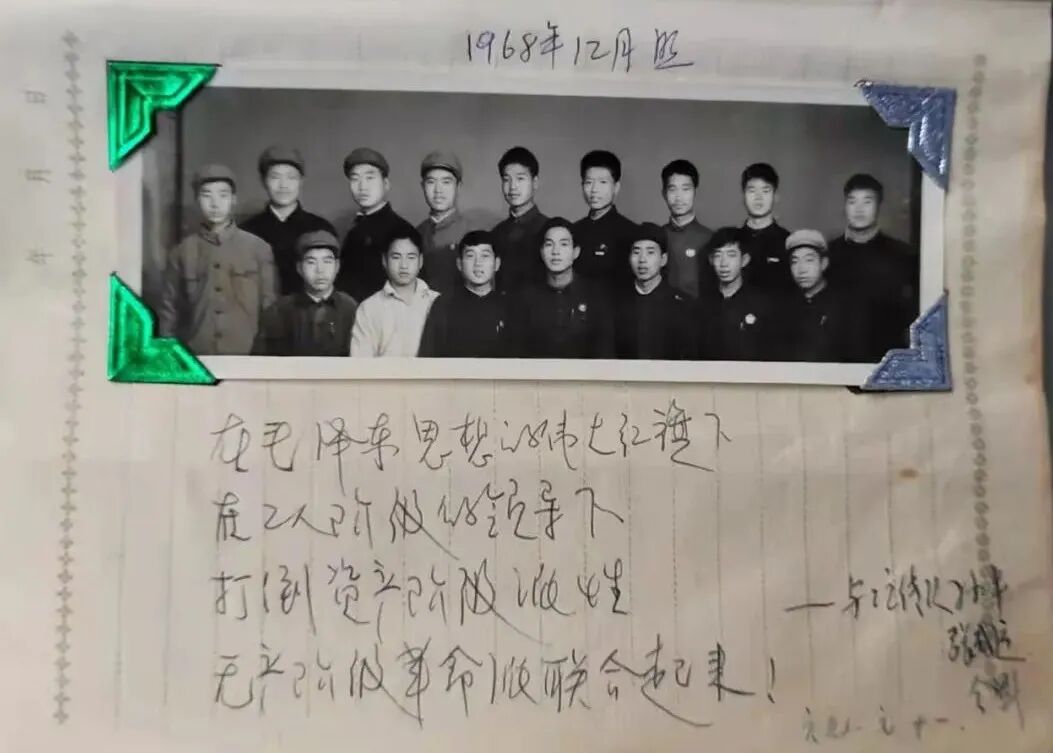 1968年12月照
年 月 日
在毛泽东思想的伟大红旗下
在工人阶级的领导下
打倒资产阶级派性
无产阶级革命派联合起来！
——与工宣队
张